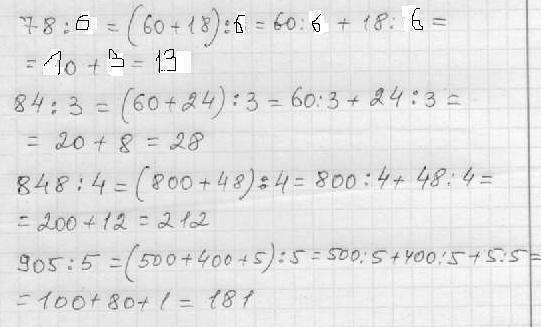 78 : 6 = (60 + 18) : 6 = 60 : 6 + 18 : 6 =
= 10 + 3 = 13
84 : 3 = (60 + 24) : 3 = 60 : 3 + 24 : 3 =
= 20 + 8 = 28
848 : 4 = (800 + 48) : 4 = 800 : 4 + 48 : 4 =
= 200 + 12 = 212
905 : 5 = (500 + 400 + 5) : 5 = 500 : 5 + 400 : 5 + 5 : 5 =
= 100 + 80 + 1 = 181